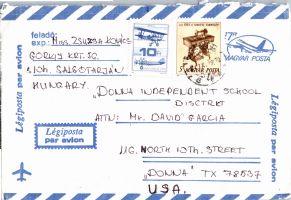 feladó:
exp.: Miss ZSUZSA KOVÁCS
GORKY KRT. 50
3104. SALGÓTARJÁN
HUNGARY
Légiposta par avion
10
MAGYAR POSTA
17Ft
MAGYAR POSTA
"DONNA INDEPENDENT SCHOOL
DISCTRKT
ATN: MR. DAVID GARCIA
116. NORTH 10TH. STREET
"DONNA" TX 78537
USA.
Légiposta
par avion
Légiposta par avion